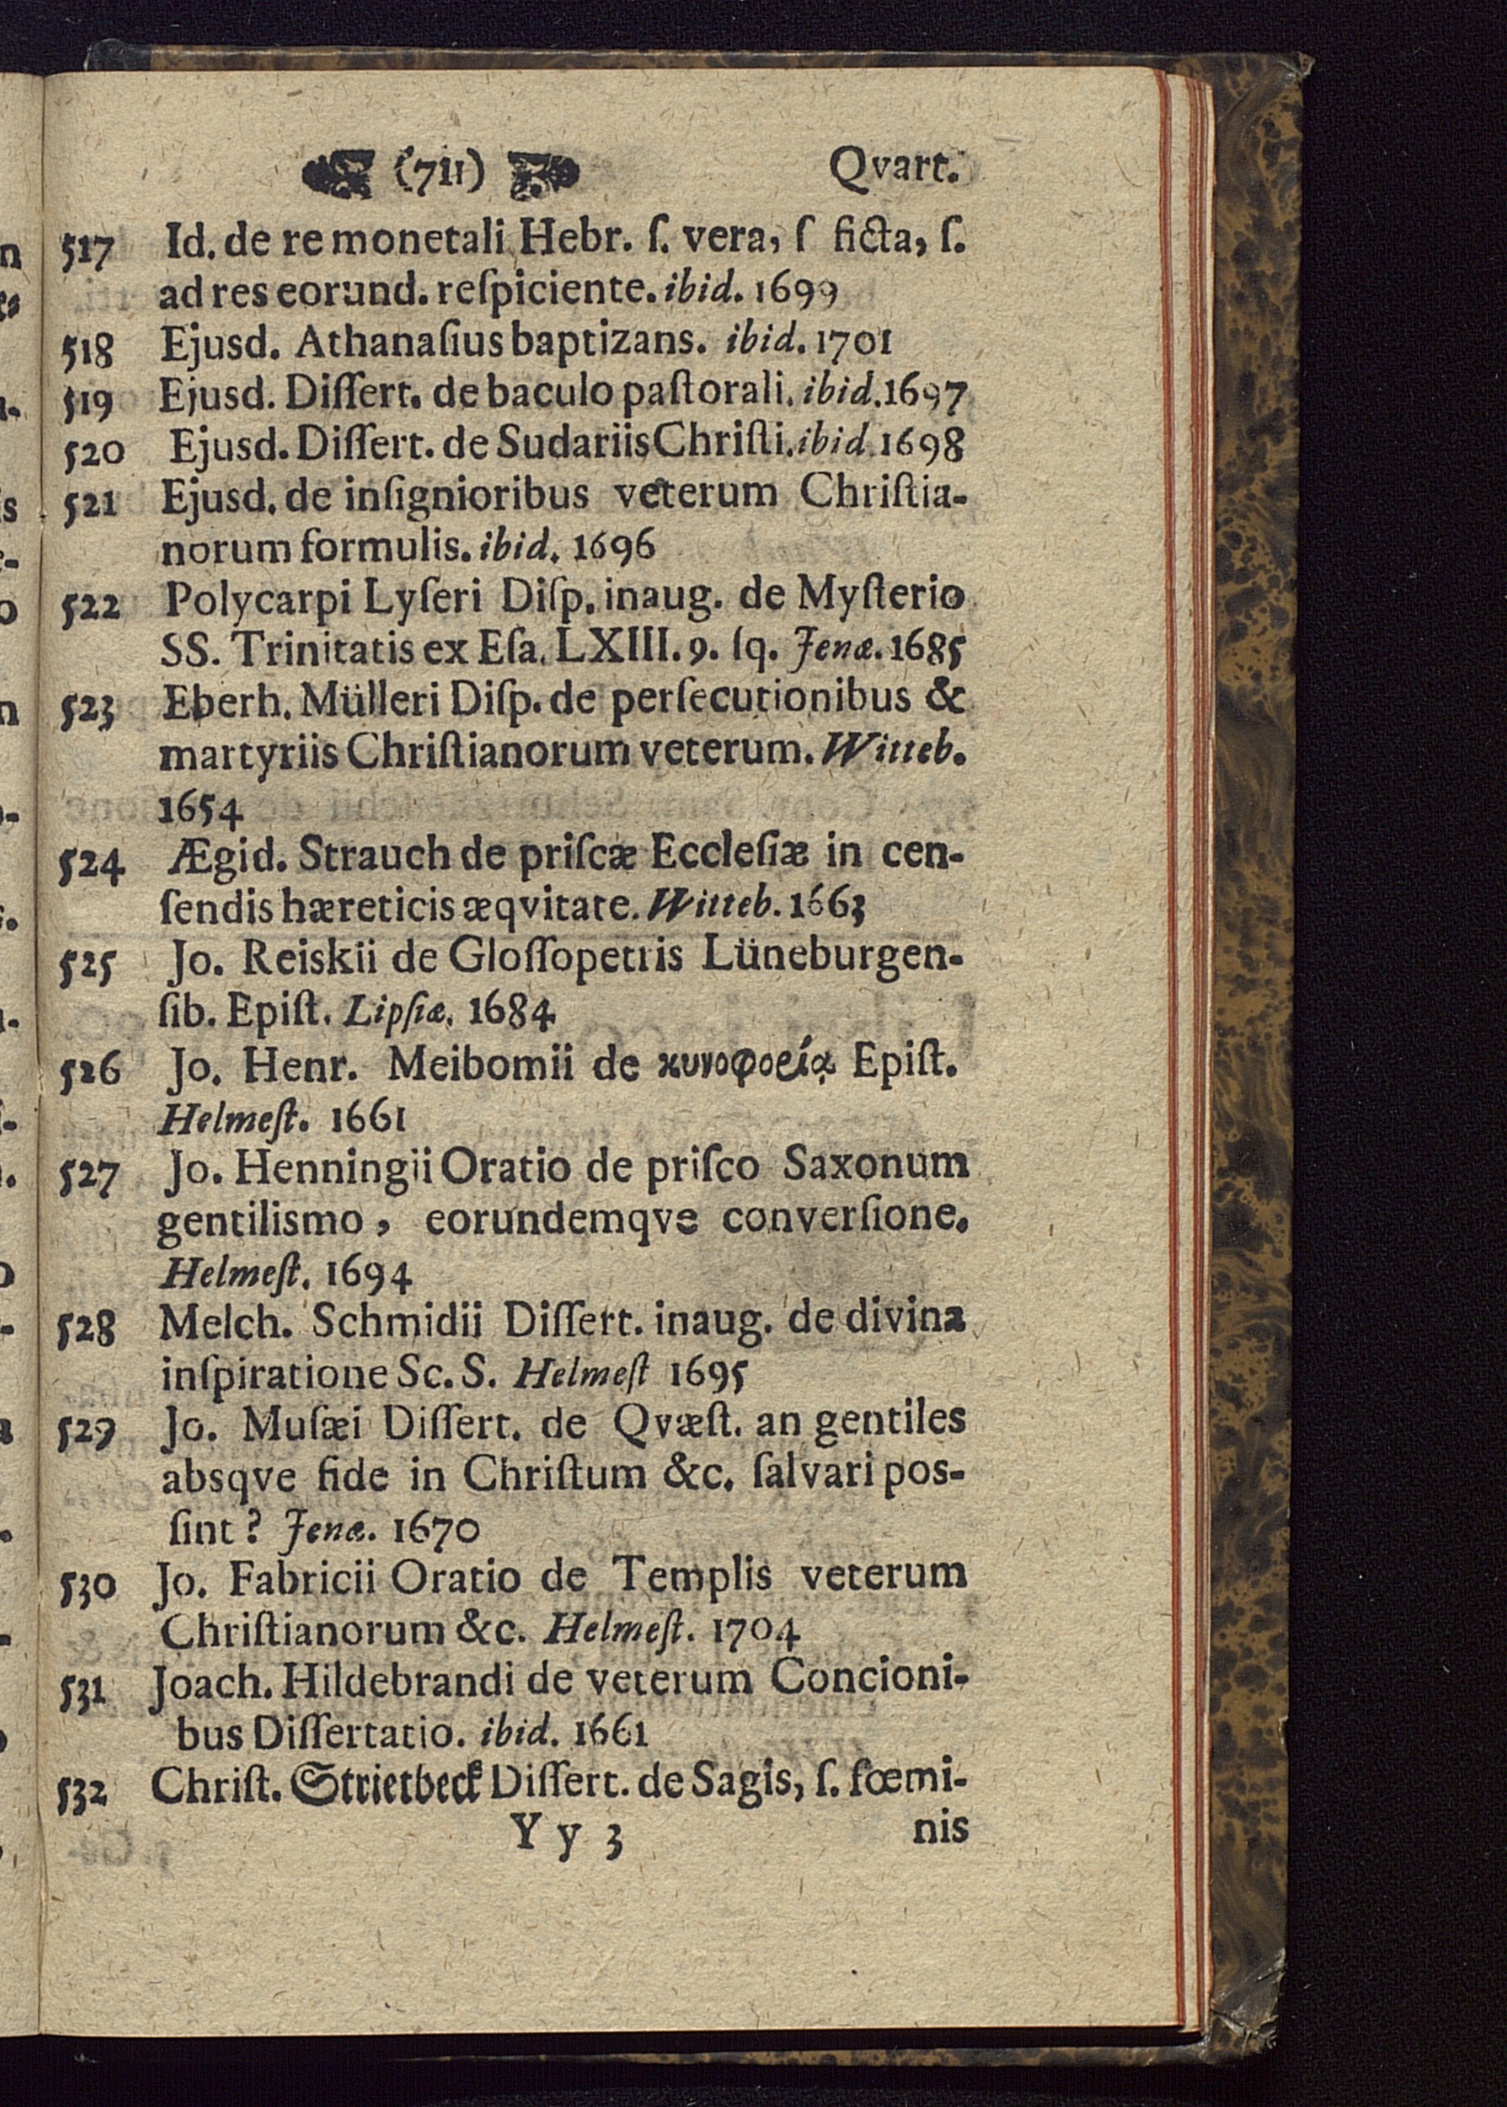 (711) Qvart.
517 Id. de re monetali Hebr. ſ. vera, ſ ficta, ſ.
ad res eorund. reſpiciente. ibid. 1699
518 Ejusd. Athanaſius baptizans. ibid. 1701
519 Ejusd. Diſſert. de baculo paſtorali. ibid. 1697
520 Ejusd. Diſſert. de Sudariis Chriſti. ibid. 1698
521 Ejusd. de inſignioribus veterum Chriſtia-
norum formulis. ibid. 1696
522 Polycarpi Lyſeri Diſp. inaug. de Myſterio
SS. Trinitatis ex Eſa. LXIII. 9. ſq. Jenæ. 1685
523 Eberh. Mülleri Diſp. de perſecutionibus &
martyriis Chriſtianorum veterum. Witteb.
1654
524 Ægid. Strauch de priſcæ Eccleſiæ in cen-
ſendis hæreticis æqvitate. Witteb. 1663
525 Jo. Reiskii de Gloſſopetris Lüneburgen-
ſib. Epiſt. Lipſiæ. 1684
526 Jo. Henr. Meibomii de κυνοφορίᾳ Epiſt.
Helmeſt. 1661
527 Jo. Henningii Oratio de priſco Saxonum
gentilismo, eorundemqve converſione.
Helmeſt. 1694
528 Melch. Schmidii Diſſert. inaug. de divina
inſpiratione Sc. S. Helmeſt 1695
529 Jo. Muſæi Diſſert. de Qvæſt. an gentiles
absqve fide in Chriſtum &c. ſalvari pos-
ſint? Jenæ. 1670
530 Jo. Fabricii Oratio de Templis veterum
Chriſtianorum &c. Helmeſt. 1704
531 Joach. Hildebrandi de veterum Concioni-
bus Diſſertatio. ibid. 1661
532 Chriſt. Strietbeck Diſſert. de Sagis, ſ. fœmi-
Y y 3 nis